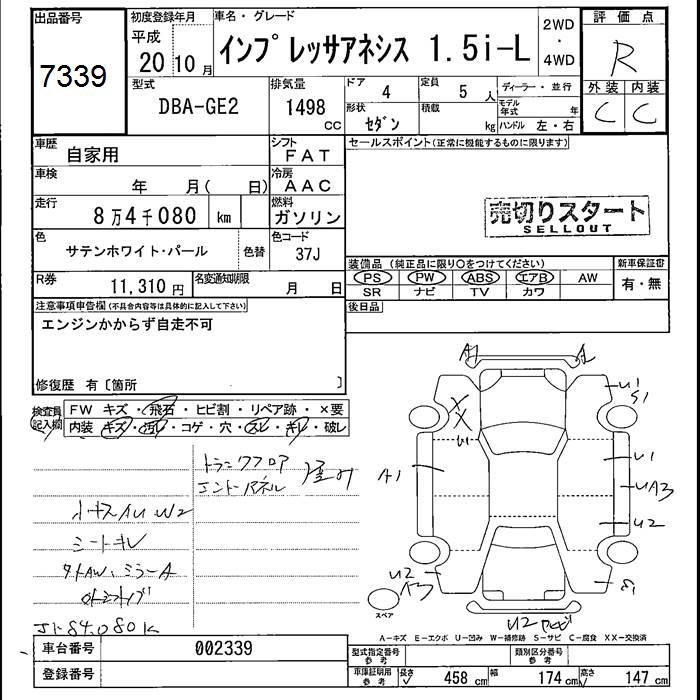 出品番号
7339
初度登録年月
平成
20 10 月
車名・グレード
インプレッサアネシス 1.5i-L
2WD
・
4WD
評価点
R
外装 内装
C C
型式
DBA-GE2
排気量
1498
CC
ドア
4
定員
5 人
ディーラー・並行
形状
セダン
積載
kg
モデル年式 年
ハンドル 左・右
車歴
自家用
シフト
FAT
セールスポイント(正常に機能するものに限ります)
車検
年 月( 日)
冷房
AAC
走行
8万4千080 km
燃料
ガソリン
売切りスタート
SELLOUT
色
サテンホワイト・パール
色替
色コード
37J
装備品(純正品に限り○をつけてください)
新車保証書
PS PW ABS エアB AW
有・無
SR ナビ TV カワ
R券
11,310 円
名変通知期限
月 日
後日品
注意事項申告欄(不具合内容等は具体的に記入して下さい)
エンジンかからず自走不可
修復歴 有〔箇所 〕
検査員記入欄
FW キズ・飛石・ヒビ割・リペア跡・×要
内装 キズ・汚レ・コゲ・穴・スレ・キレ・破レ
トランクフロア
エンドパネル
シートキレ
ミラーA
84.080K
A1
A1
X
X
U1
U1
S1
U1
UA3
U2
U2
A3
S1
U2
スペア
A-キズ E-エクボ U-凹み W-補修跡 S-サビ C-腐食 XX-交換済
車台番号
002339
登録番号
型式指定番号
参考
類別区分番号
参考
車庫証明用
参考
長さ 458 cm 幅 174 cm 高さ 147 cm